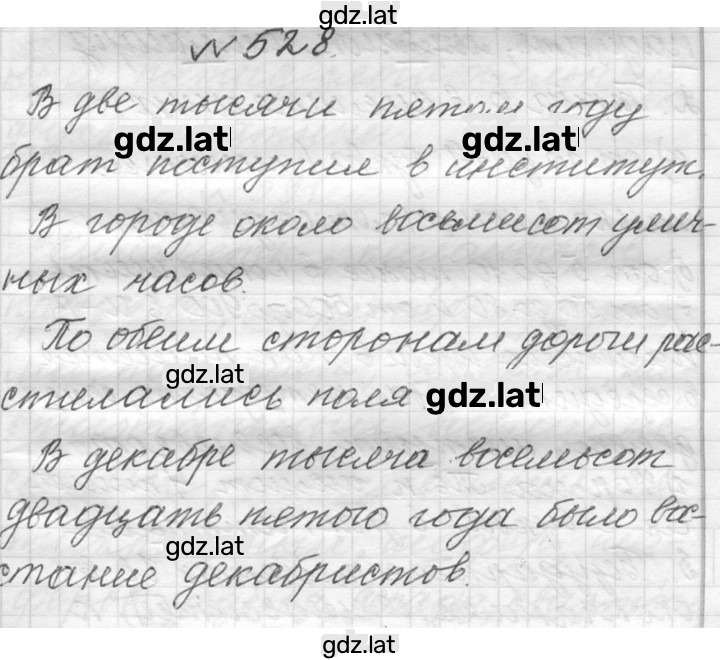 gdz.lat
№ 528.
В две тысячи пятом году
gdz.lat gdz.lat
брат поступил в институт.
В городе около восьмисот улич-
ных часов.
По обеим сторонам дороги рас-
gdz.lat
стилались поля gdz.lat
В декабре тысяча восемьсот
двадцать пятого года было вос-
gdz.lat
стание декабристов.
gdz.lat